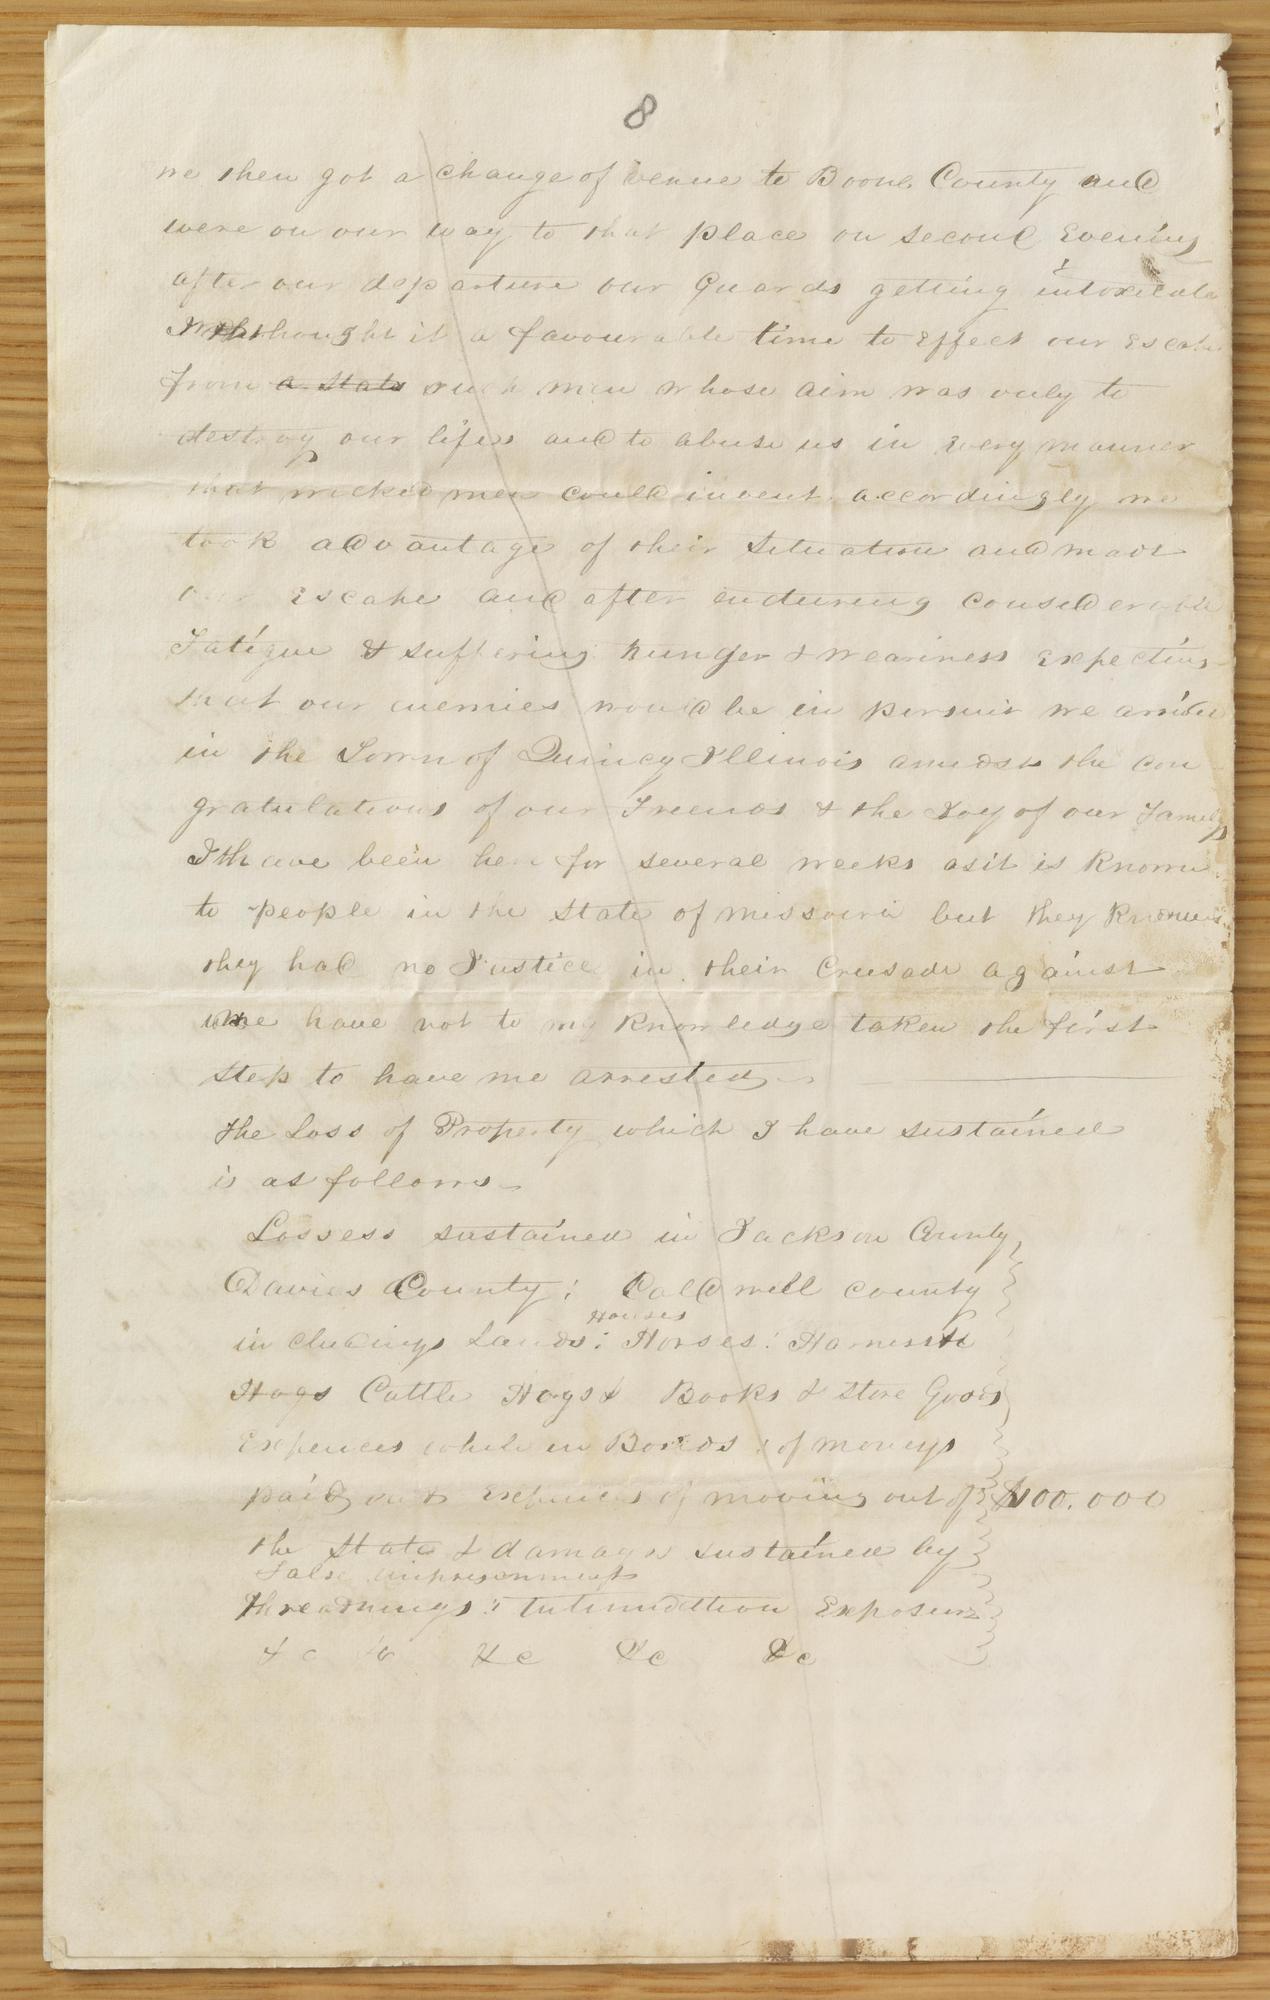 8
we then got a change of venue to Boone County and
were on our way to that place on second Evening
after our departure our Guards getting intoxicate
thought it a favourable time to Effect our Escape
from a State such men whose aim was only to
destroy our lifes and to abuse us in Every manner
that wicked men could invent accordingly we
took advantage of their Situation and made
our Escape and after enduring considerable
Fatigue & suffering hunger & weariness Expecting
that our enemies would be in pursuit we arrived
in the Town of Quincy Illinois amidst the con
gratulations of our Friends & the Joy of our Family
I have been here for several weeks as it is known
to people in the State of missouri but they knowing
they had no Justice in their Crusade against
me have not to my Knowledge taken the first
step to have me arrested
The Loss of Property which I have sustained
is as follows
Lossess sustained in Jackson County
Davies County; Caldwell County
Houses
including Lands; Horses; Harness
Hogs Cattle Hogs & Books & Store Goods
Expences while in Bonds; of moneys
paid out Expences of moving out of $100.000
the State & damages sustained by
False imprisonment
threatnings; Intimidation Exposure
&c &c &c &c &c